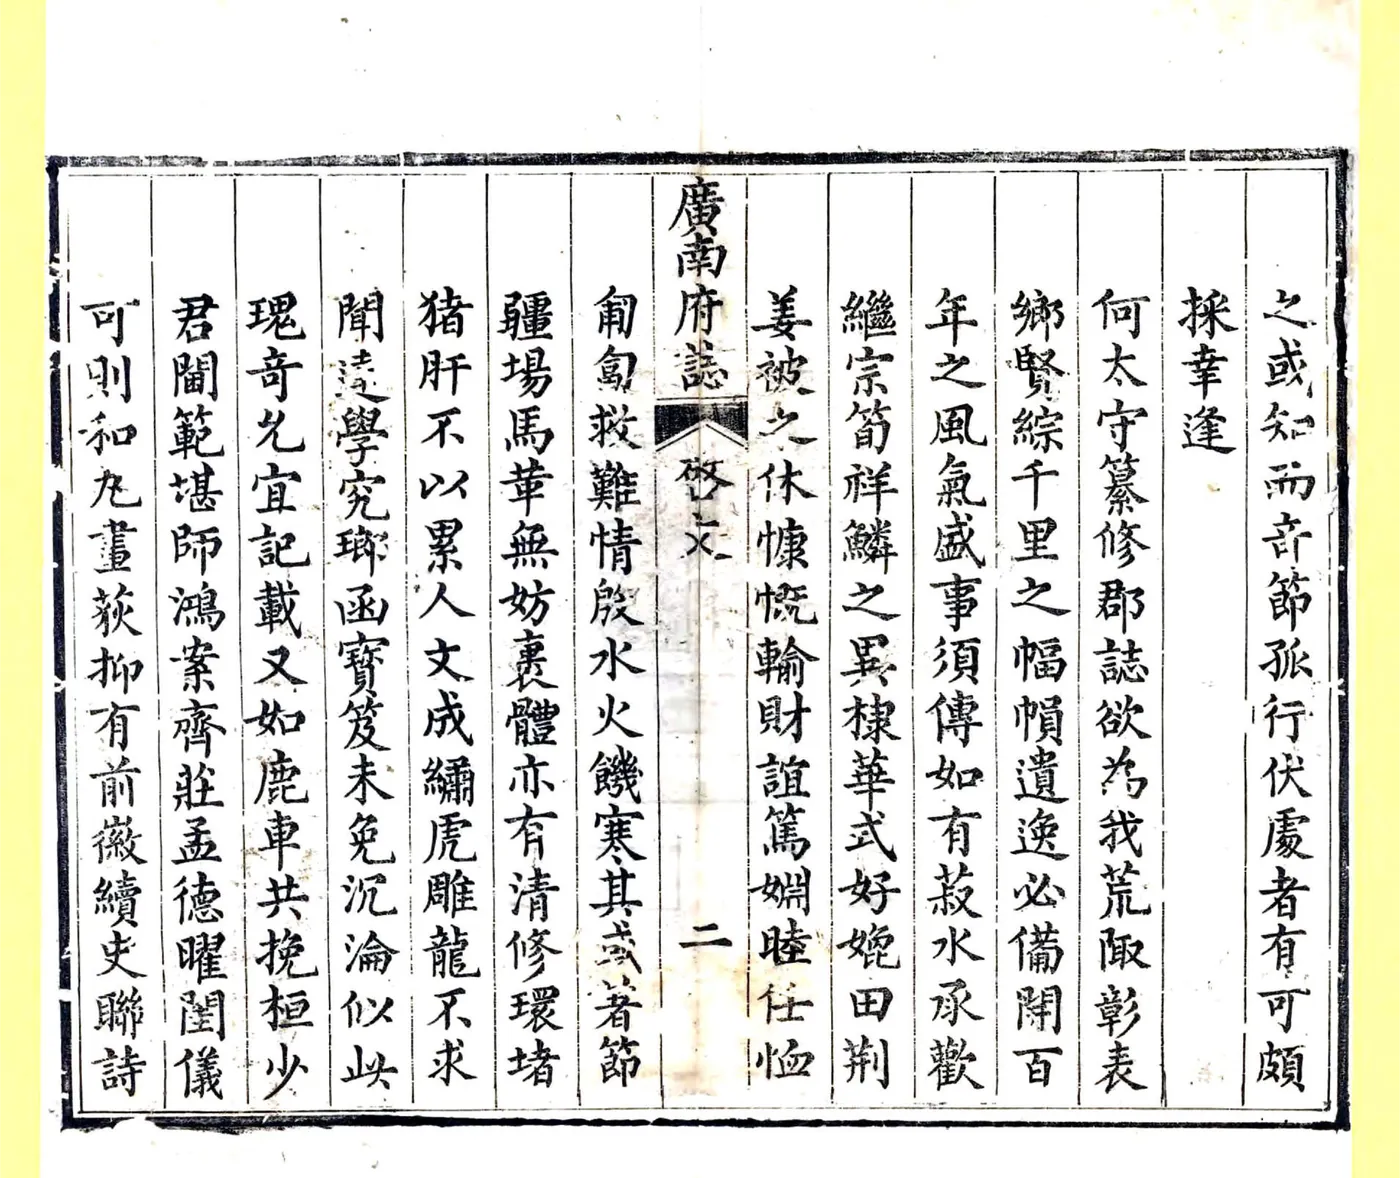 之或知而音節孤行伏處者有可頗
採幸逢
何太守纂修郡誌欲為我荒陬彰表
鄉賢綜千里之幅幀遺逸必備開百
年之風氣盛事須傳如有菽水承歡
繼宗筍祥鱗之異棣華式好媲田荆
姜被之休慷慨輸財誼篤婣睦任恤
廣南府誌
啓文
二
匍匐救難情殷水火饑寒其或著節
疆場馬革無妨裹體亦有清修環堵
猪肝不以累人文成繡虎雕龍不求
聞達學究瑯函寶笈未免沉淪似此
瑰奇允宜記載又如鹿車共挽桓少
君閫範堪師鴻案齊莊孟德曜閨儀
可則和丸畫荻抑有前徽續史聯詩